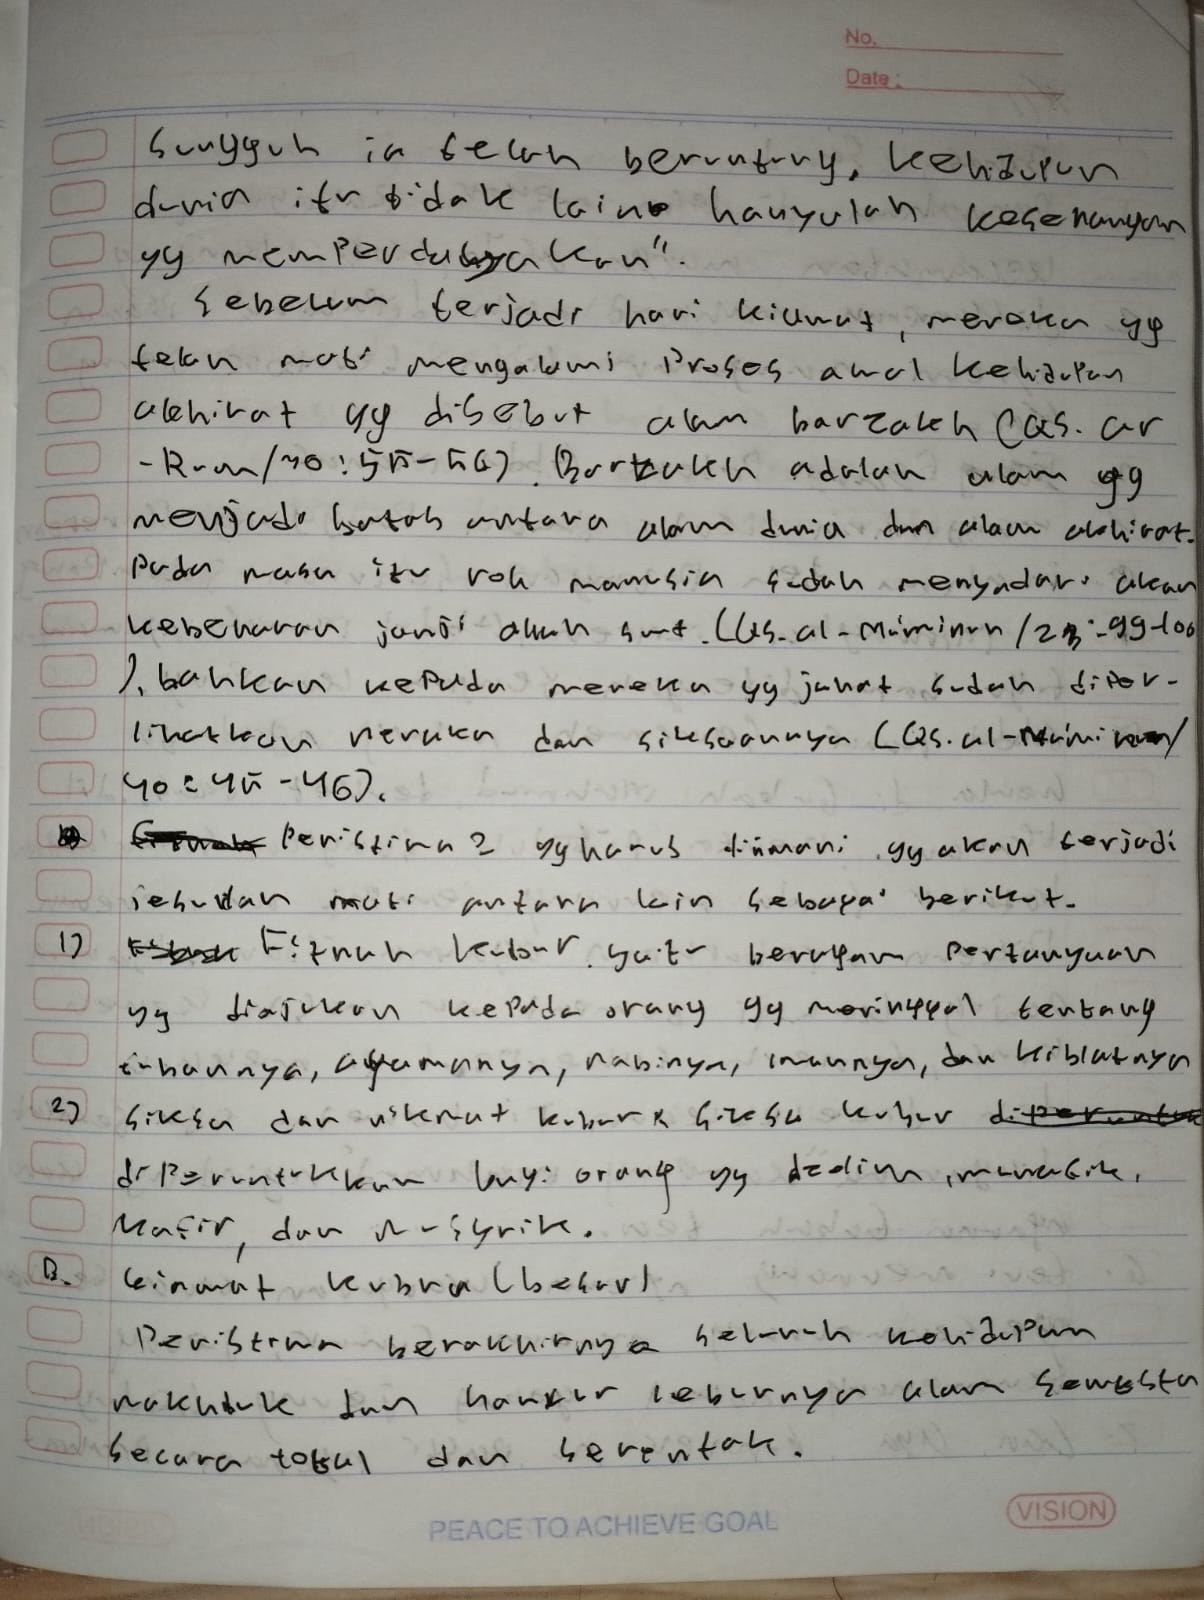 No.
Date:
Sungguh ia telah beruntung, kehidupan
dunia itu tidak lain hanyalah kesenangan
yg memperdayakan".
Sebelum terjadi hari kiamat, mereka yg
telah mati mengalami proses awal kehidupan
akhirat yg disebut alam barzakh (QS. ar
-Rum/30:55-56). Barzakh adalah alam yg
menjadi batas antara alam dunia dan alam akhirat.
Pada masa itu roh manusia sudah menyadari akan
kebenaran janji allah swt. (QS. al-Mu'minun/23:99-100
), bahkan kepada mereka yg jahat sudah diper-
lihatkan neraka dan siksaannya (QS. al-Mu'min/
40:45-46).
Peristiwa2 yg harus diimani yg akan terjadi
sesudah mati antara lain sebagai berikut.
1) Fitnah kubur, yaitu beragam pertanyaan
yg diajukan kepada orang yg meninggal tentang
tuhannya, agamanya, nabinya, imannya, dan kiblatnya
2) siksa dan nikmat kubur siksa kubur
diperuntukkan bagi orang yg dzolim, munafik,
kafir, dan musyrik.
B. kiamat kubra (besar)
Peristiwa berakhirnya seluruh kehidupan
makhluk dan hancur leburnya alam semesta
secara total dan serentak.
PEACE TO ACHIEVE GOAL
VISION